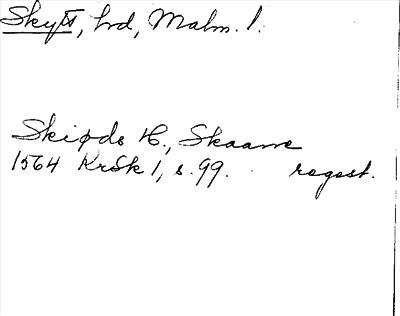 Skytts, hrd, Malm. l.
Skiøds H., Skaane
1564 KrSk 1, s. 99. regest.